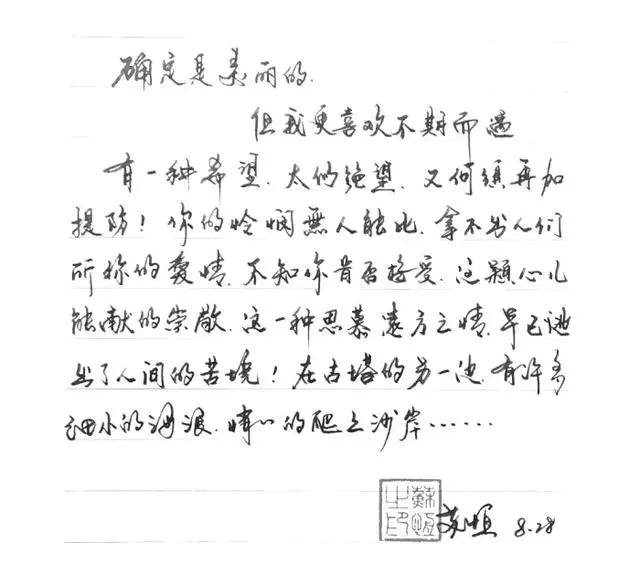 确定是美丽的.
但我更喜欢不期而遇
有一种希望.太似绝望.又何须再加
提防！你的怜悯無人能比.拿不出人们
所称的爱情.不知你肯否接受.这颗心儿
能献的崇敬.这一种思慕远方之情.早已逃
出了人间的苦境！在古塔的另一边.有许多
细小的海浪.悄悄的爬上沙岸……
蘇恒之印
苏恒 8.28